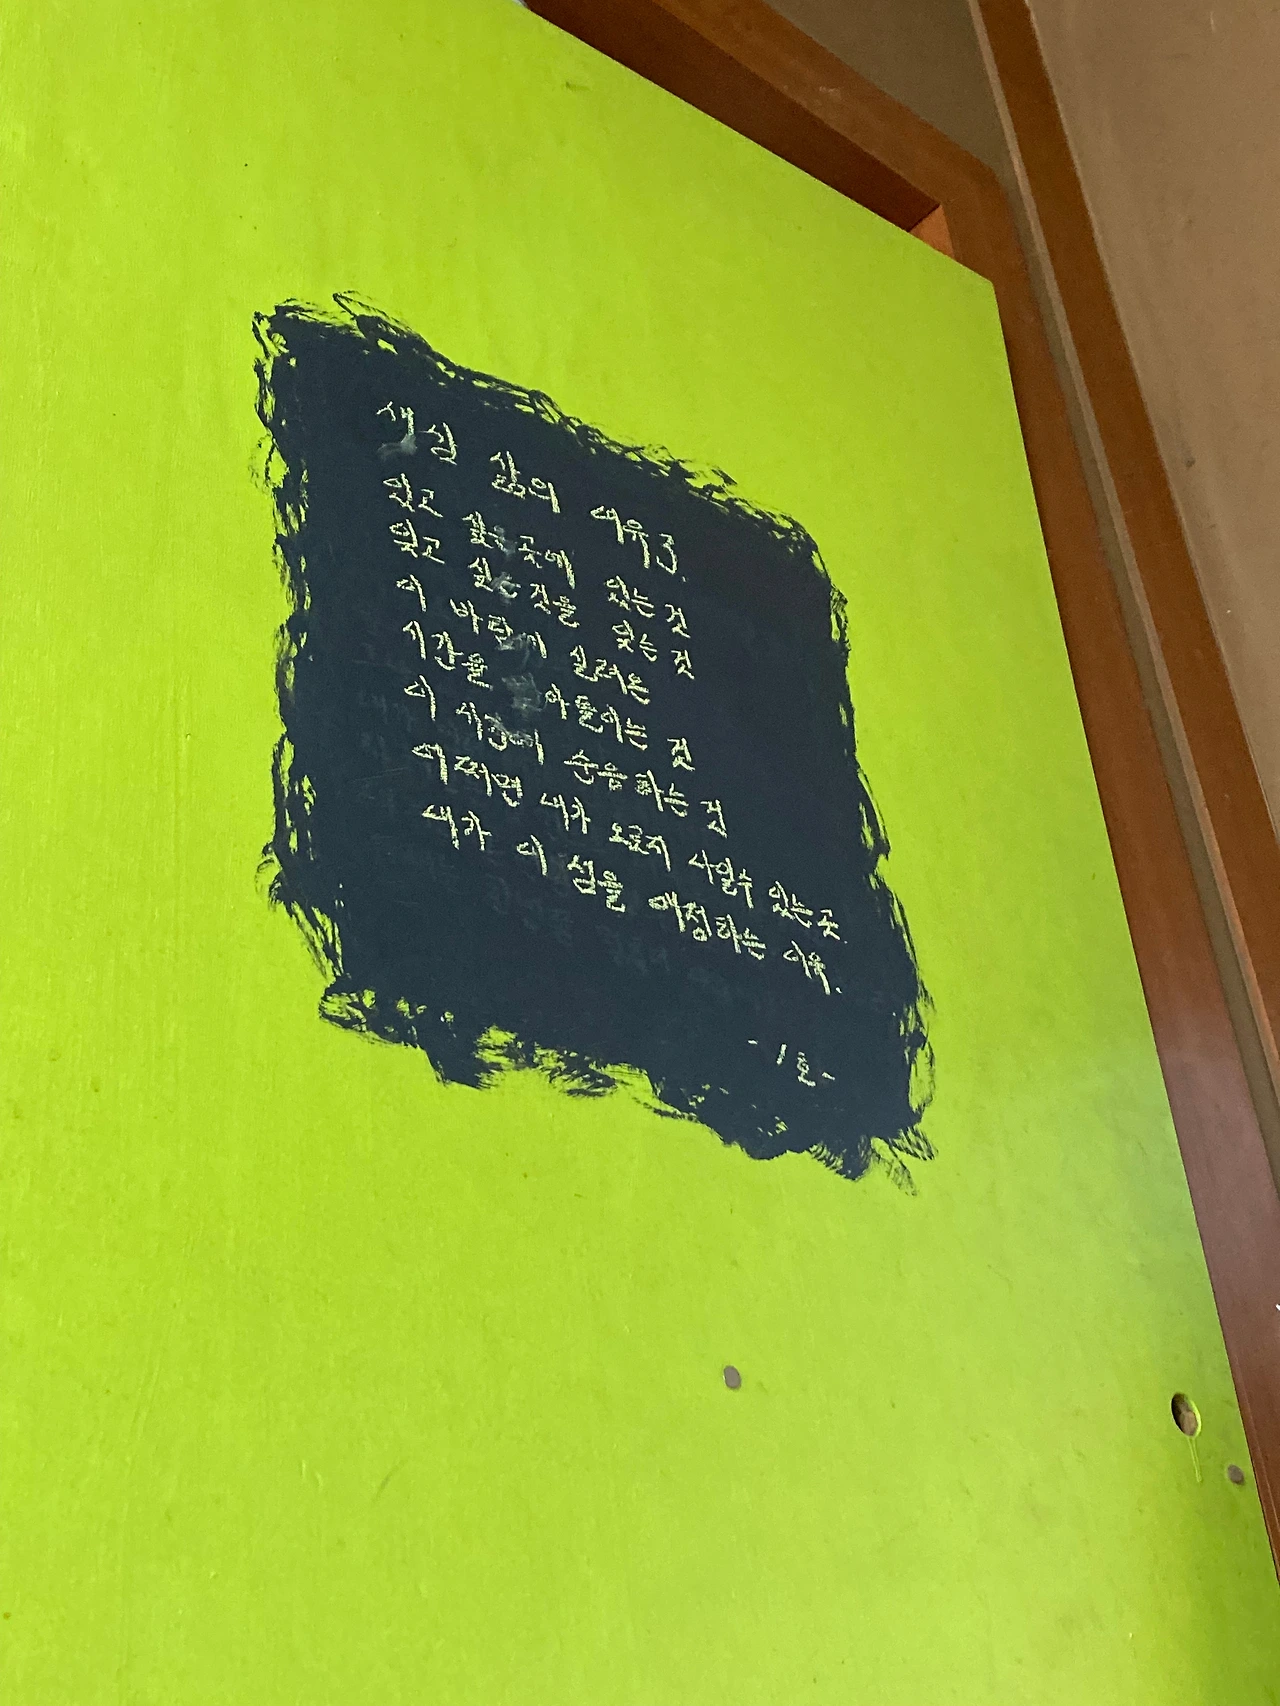 새삼 삶의 여유란.
있고 싶은 곳에 있는 것
잊고 싶는 것을 잊는 것
이 바람에 실려온
시간을 받아들이는 것
이 시간에 순응하는 것
어쩌면 내가 오로지 나일수 있는곳.
내가 이 섬을 애정하는 이유.
-1호-